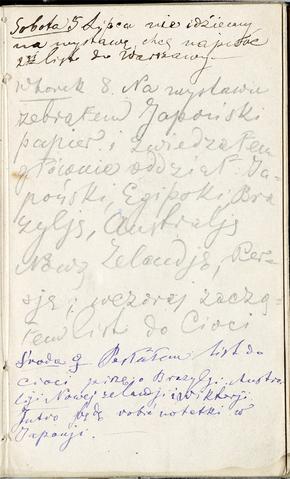 Sobota 5 Lipca nie idziemy
na wystawę chcę napisać
list do Warszawy
Wtorek 8. Na wystawie
zebrałem Japoński
papier i zwiedzałem
głównie oddział Ja-
poński, Egipski, Bra
zylją, Australją
Nową Zelandję, Per-
sję; wczoraj zaczą-
łem list do Cioci
Środa 9 Posłałem list do
cioci Brazylji, Austra
lji Nowej Zelandji i Wiktorji
Jutro będę robić notatki w
Japonji.